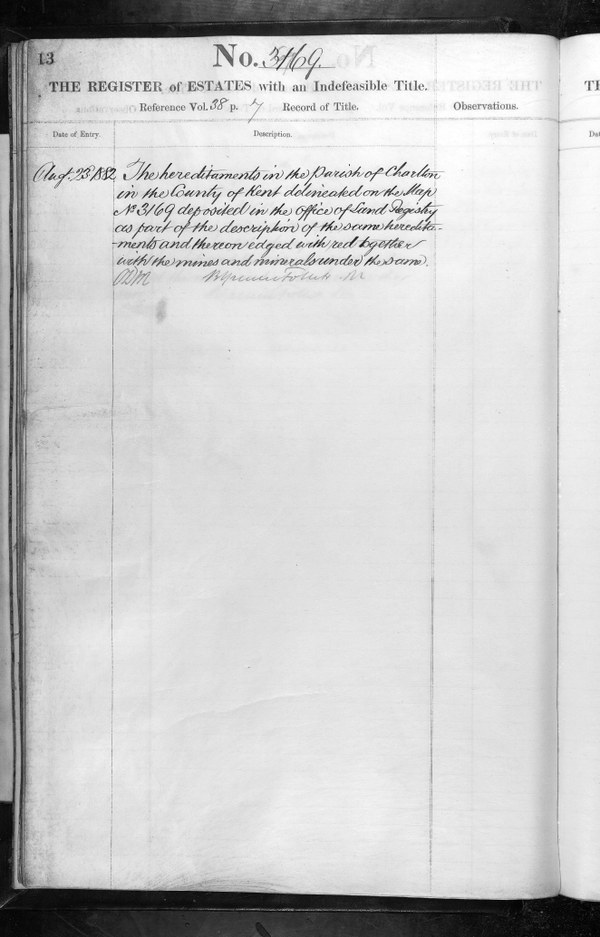 13
No. 3169.
THE REGISTER of ESTATES with an Indefeasible Title.
Reference Vol. 38 p. 7 Record of Title.
Observations.
Date of Entry.
Description.
Augt. 23d 1882
The hereditaments in the Parish of Charlton
in the County of Kent delineated on the Map
No 3169 deposited in the Office of Land Registry
as part of the description of the same heredita-
-ments and thereon edged with red together
with the mines and minerals under the same.